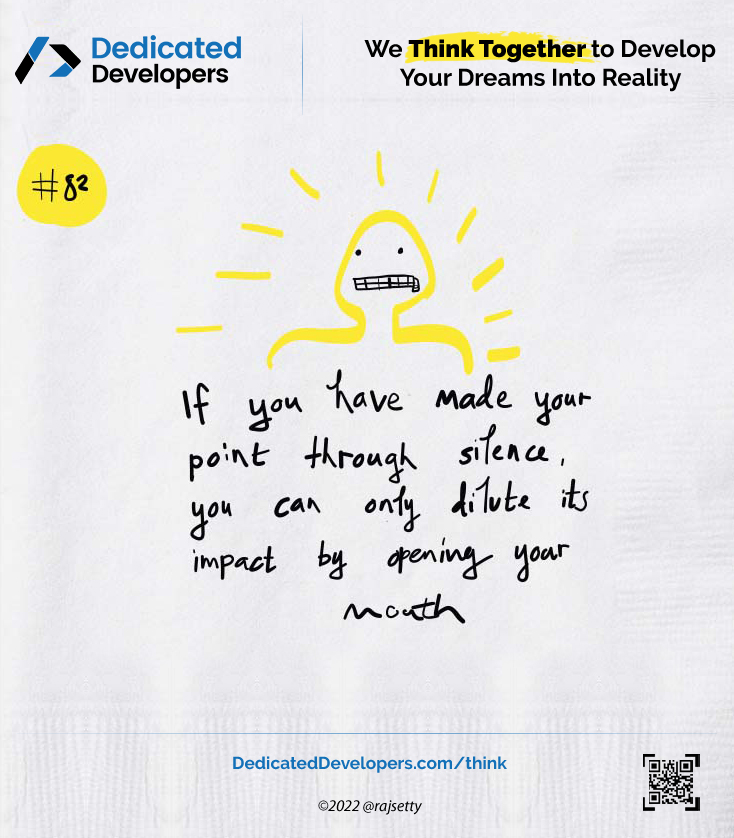 Dedicated
Developers
We Think Together to Develop
Your Dreams Into Reality
#82
If you have made your
point through silence,
you can only dilute its
impact by opening your
mouth
DedicatedDevelopers.com/think
©2022 @rajsetty